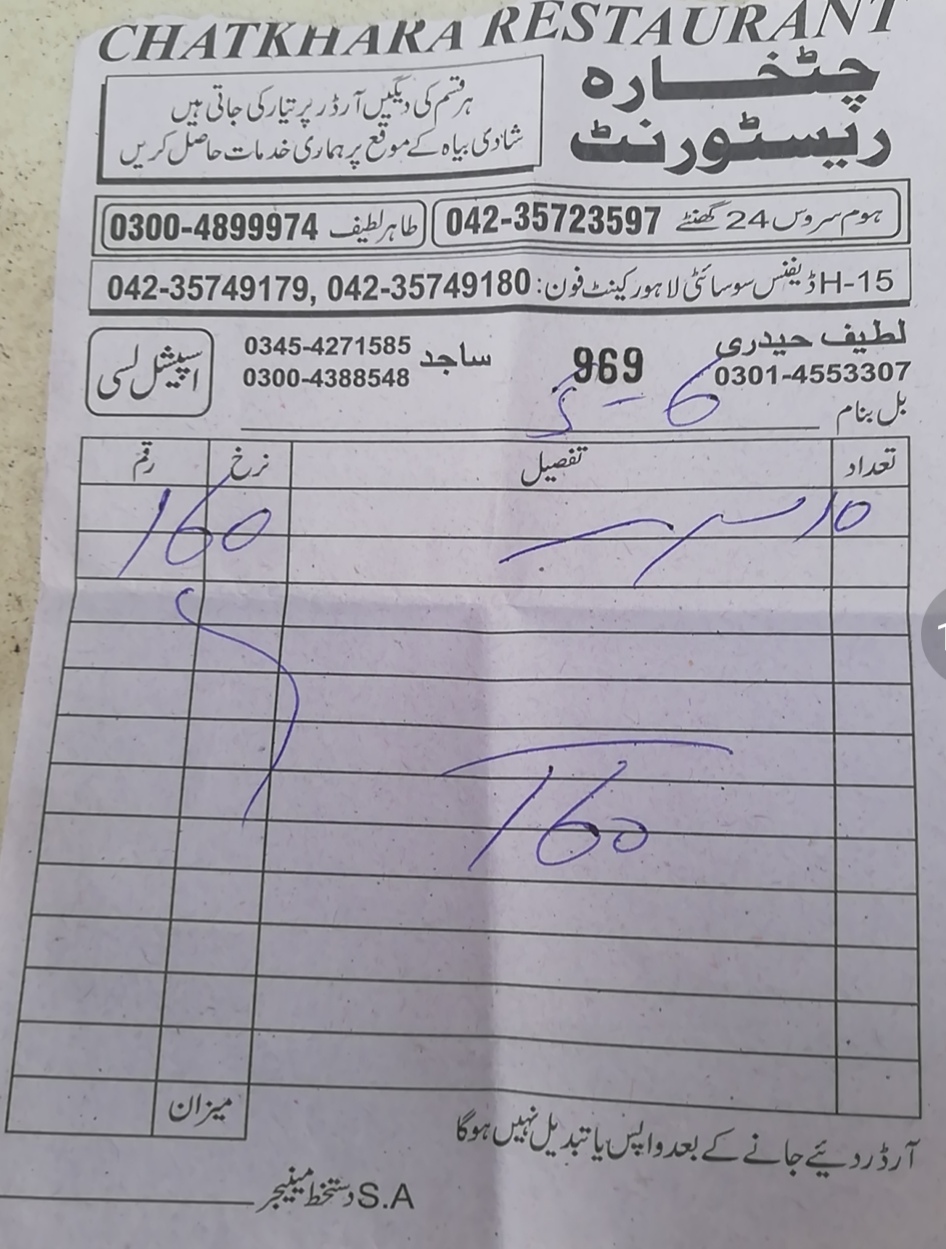 CHATKHARA RESTAURANT
چٹخارہ
ریسٹورنٹ
ہر قسم کی دیگیں آرڈر پر تیار کی جاتی ہیں
شادی بیاہ کے موقع پر ہماری خدمات حاصل کریں
ہوم سروس 24 گھنٹے 042-35723597 طاہر لطیف 0300-4899974
H-15 ڈیفنس سوسائٹی لاہور کینٹ فون: 042-35749180 ,042-35749179
لطیف حیدری 0301-4553307
969
ساجد 0345-4271585
0300-4388548
اسپیشل لسی
بل بنام
تعداد تفصیل نرخ رقم
10 160
160
میزان
آرڈر دیئے جانے کے بعد واپس یا تبدیل نہیں ہوگا
S.A دستخط مینیجر